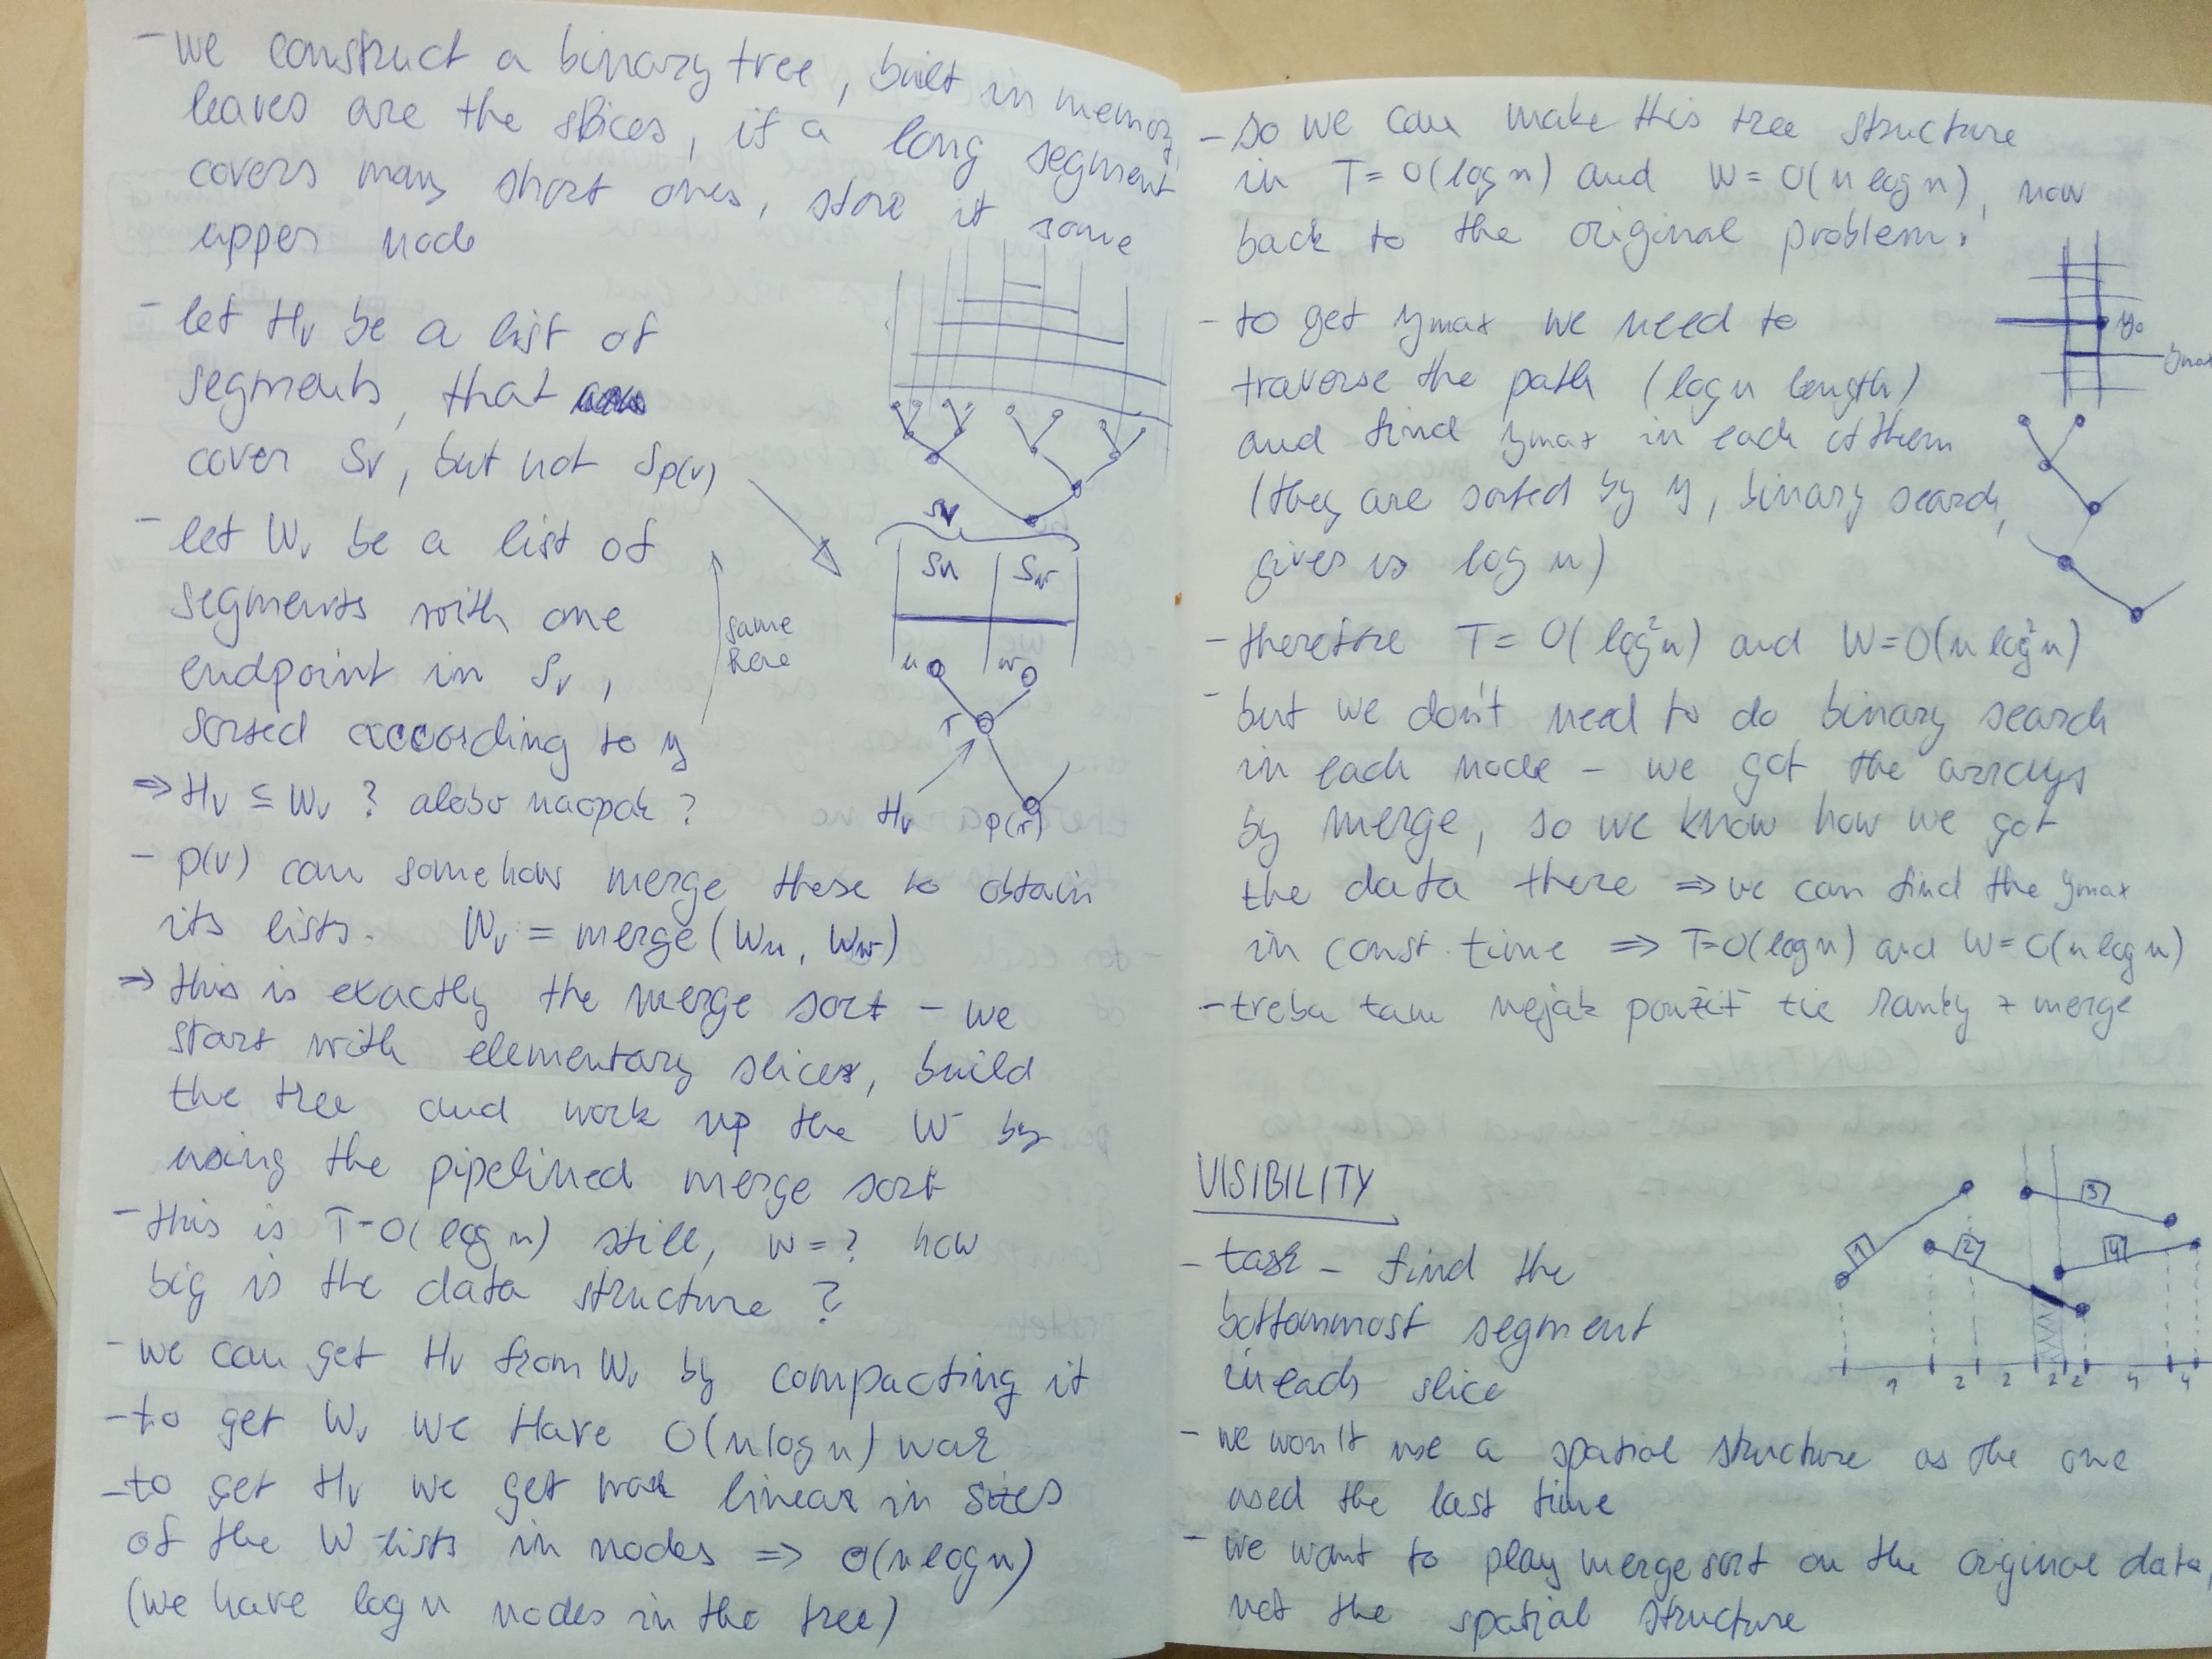 - we construct a binary tree, built in memory,
leaves are the slices, if a long segment
covers many short ones, store it some
upper node
- let Hv be a list of
segments, that
cover Sv, but not Sp(v)
- let Wv be a list of
segments with one
endpoint in Sv,
sorted according to y
same
here
Sv
Su Sw
u w
v
Hv p(v)
⇒ Hv ⊆ Wv ? alebo naopak ?
- p(v) can somehow merge these to obtain
its lists. Wv = merge(Wu, Ww)
⇒ this is exactly the merge sort - we
start with elementary slices, build
the tree and work up the W by
using the pipelined merge sort
- this is T=O(log n) still, W=? how
big is the data structure ?
- we can get Hv from Wv by compacting it
- to get Wv we have O(n log n) work
- to get Hv we get work linear in sizes
of the W lists in nodes ⇒ O(n log n)
(we have log n nodes in the tree)
- so we can make this tree structure
in T= O(log n) and W= O(n log n), now
back to the original problem.
- to get ymax we need to
traverse the path (log n length)
and find ymax in each of them
(they are sorted by y, binary search,
gives is log n)
y0
ymax
- therefore T= O(log²n) and W=O(n log²n)
- but we don't need to do binary search
in each node - we got the arrays
by merge, so we know how we got
the data there ⇒ we can find the ymax
in const. time ⇒ T=O(log n) and W=O(n log n)
- treba tam nejak použiť tie ranky z merge
VISIBILITY
- task - find the
bottommost segment
in each slice
1 2 3 4
1 2 2 2 2 4 4
- we won't use a spatial structure as the one
used the last time
- we want to play merge sort on the original data,
not the spatial structure